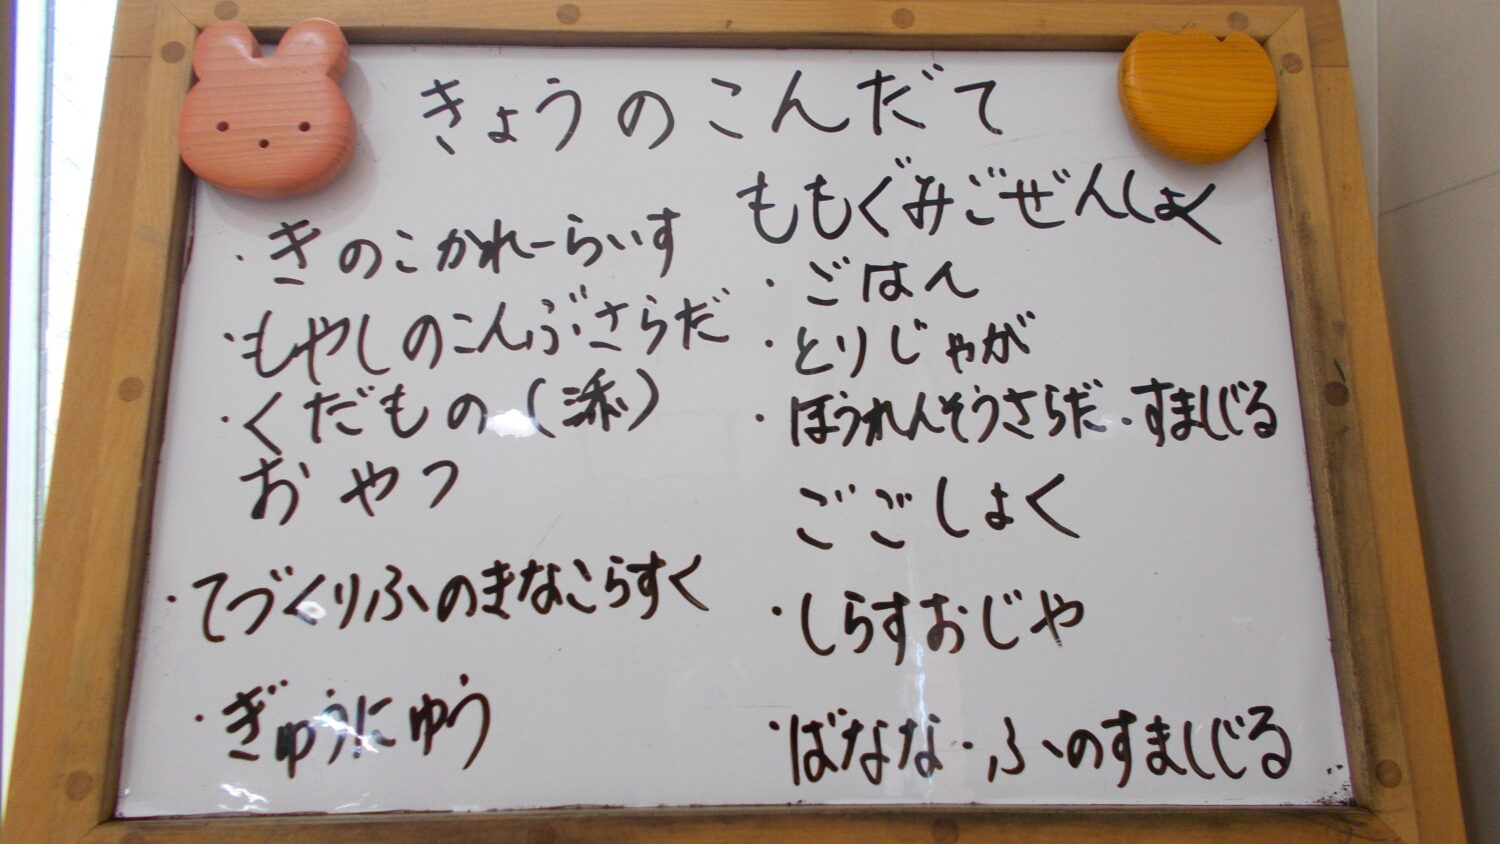 きょうのこんだて
・きのこかれーらいす
・もやしのこんぶさらだ
・くだもの(添)
おやつ
・てづくりふのきなこらすく
・ぎゅうにゅう
ももぐみごぜんしょく
・ごはん
・とりじゃが
・ほうれんそうさらだ・すましじる
ごごしょく
・しらすおじや
・ばなな・ふのすましじる